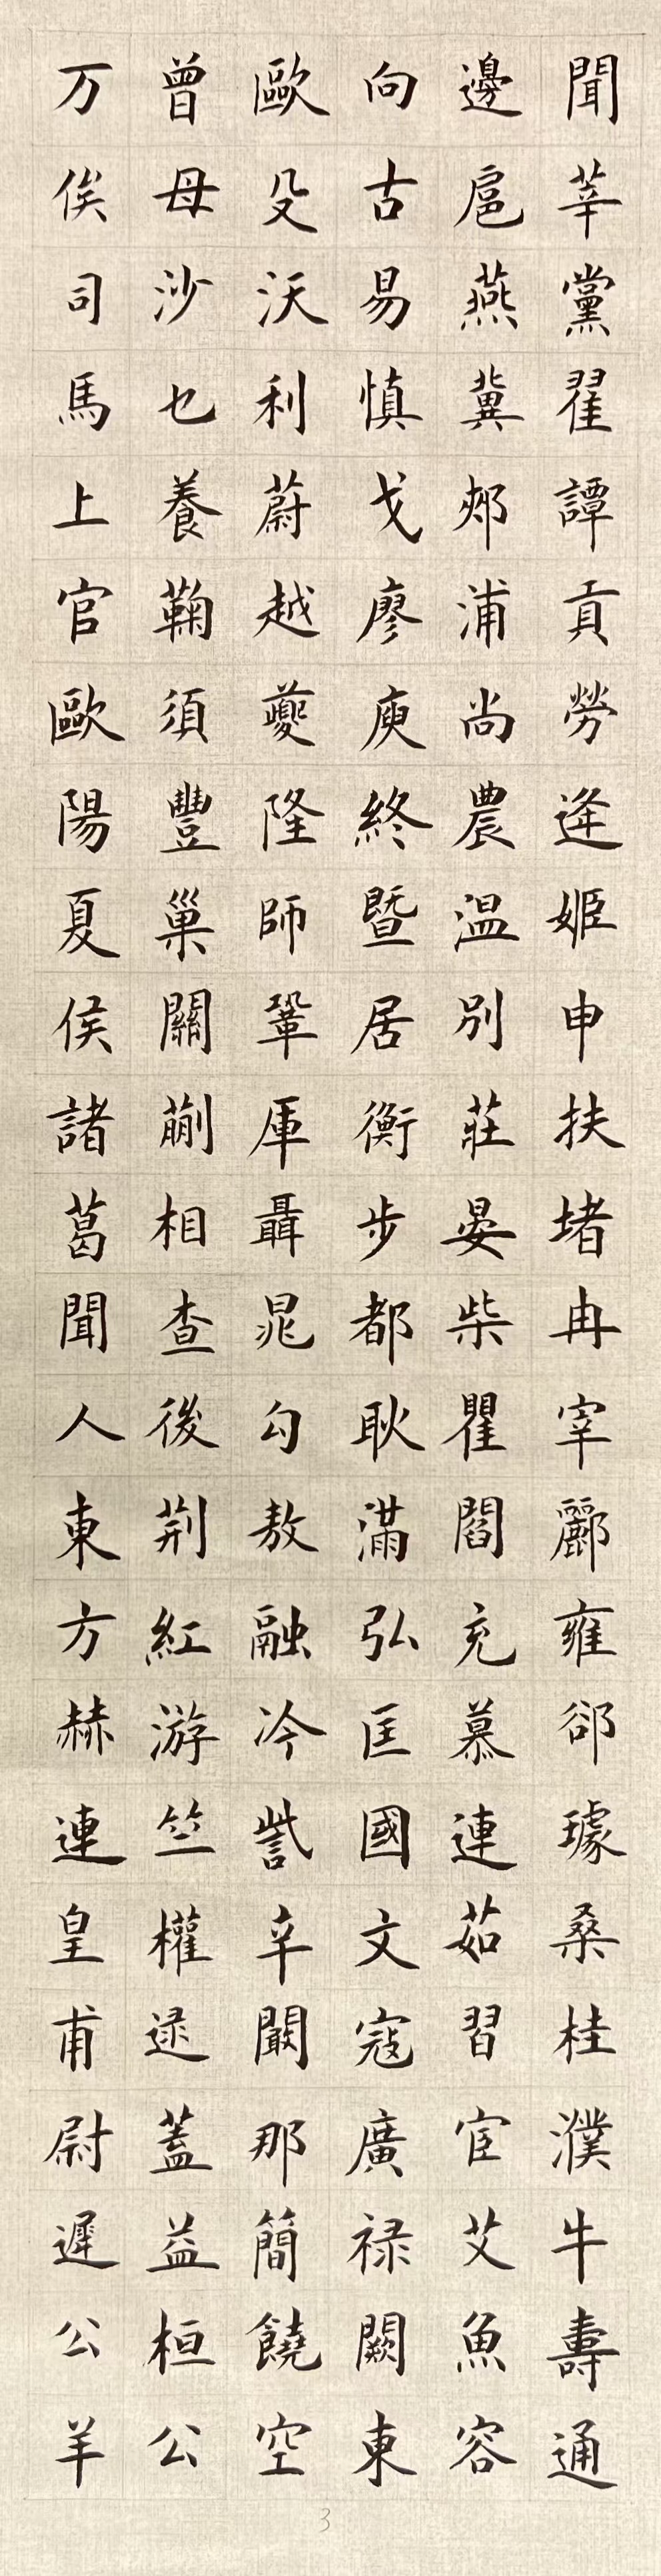 聞莘黨翟譚貢勞逄姬申扶堵冉宰酈雍郤璩桑桂濮牛壽通
邊扈燕冀郟浦尚農温別莊晏柴瞿閻充慕連茹習宦艾魚容
向古易慎戈廖庾終暨居衡步都耿滿弘匡國文寇廣禄闕東
歐殳沃利蔚越夔隆師鞏厙聶晁勾敖融冷訾辛闞那簡饒空
曾毋沙乜養鞠須豐巢關蒯相查後荆紅游竺權逯蓋益桓公
万俟司馬上官歐陽夏侯諸葛聞人東方赫連皇甫尉遲公羊
3